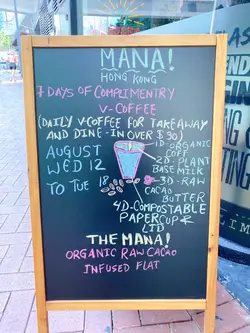 MANA!
HONG KONG
7 DAYS OF COMPLIMENTRY
V-COFFEE
(DAILY V-COFFEE FOR TAKEAWAY
AND DINE-IN OVER $90)
AUGUST
WED 12
TO TUE 18
1D-ORGANIC
COFF
2D-PLANT
BASE MILK
3D-RAW
CACAO
BUTTER
4D-COMPOSTABLE
PAPER CUP
LTD
THE MANA!
ORGANIC RAW CACAO
INFUSED FLAT